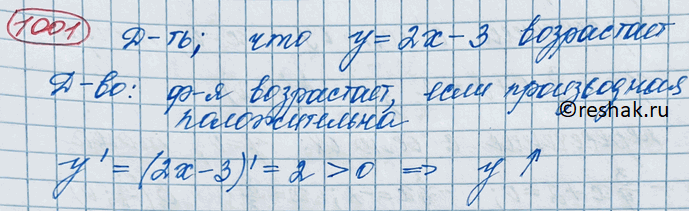 1001 Д-ть; что y = 2x - 3 возрастает
Д-во: ф-я возрастает, если производная
положительна
©reshak.ru
y' = (2x - 3)' = 2 > 0 ⇒ y ↑